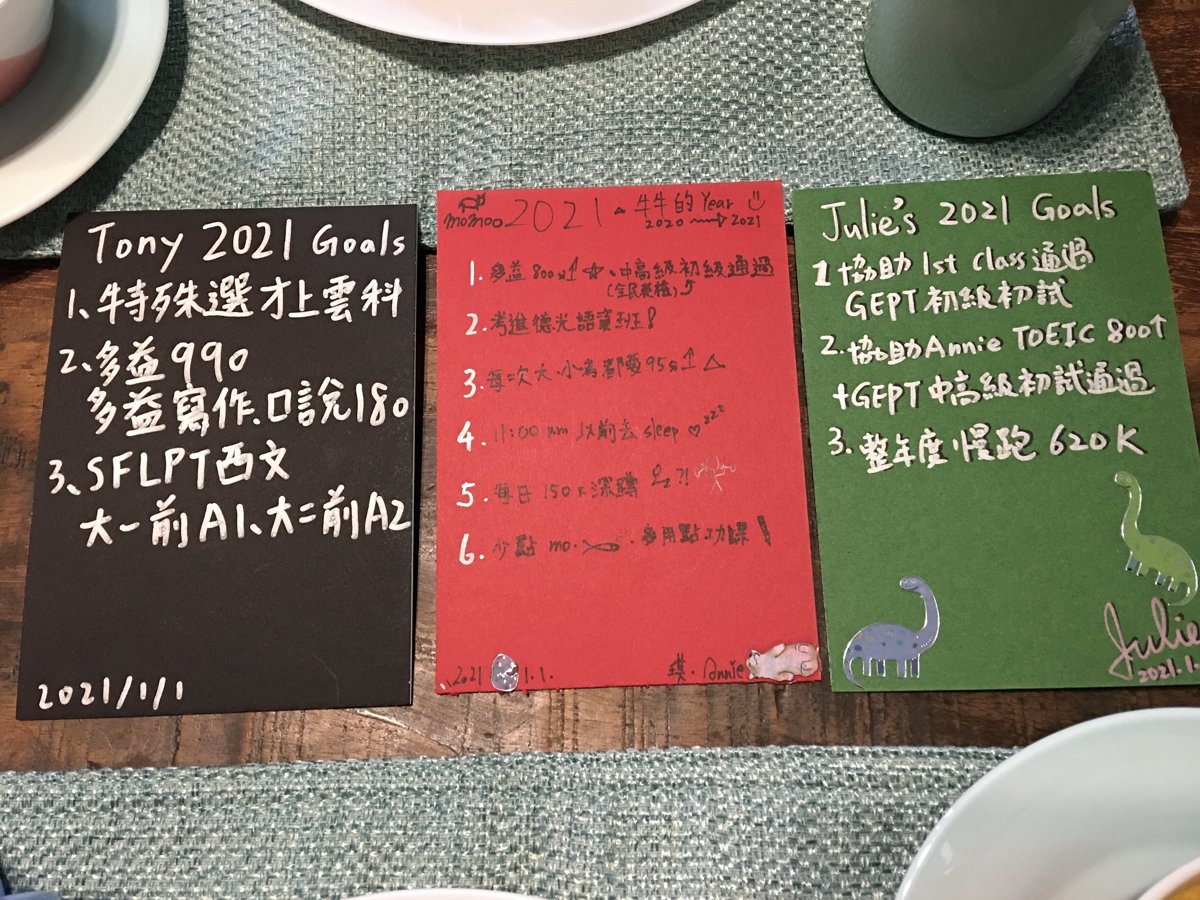 Tony 2021 Goals
1、特殊選才上雲科
2、多益990
多益寫作、口說180
3、SFLPT西文
大一前A1、大二前A2
2021/1/1
momoo 2021 牛牛的Year
2020 → 2021
1. 多益800↑☆、中高級初級通過
(全民英檢)
2. 考進德光語資班!
3. 每次大、小考都要95↑△
4. 11:00 以前去sleep♡zzz
5. 每日150x深蹲 ?!
6. 少點mo. 多用點功課!
2021 1.1.
Annie
Julie's 2021 Goals
1 協助1st class通過
GEPT初級初試
2. 協助Annie TOEIC 800↑
+GEPT中高級初試通過
3. 整年度慢跑620K
Julie
2021.1.